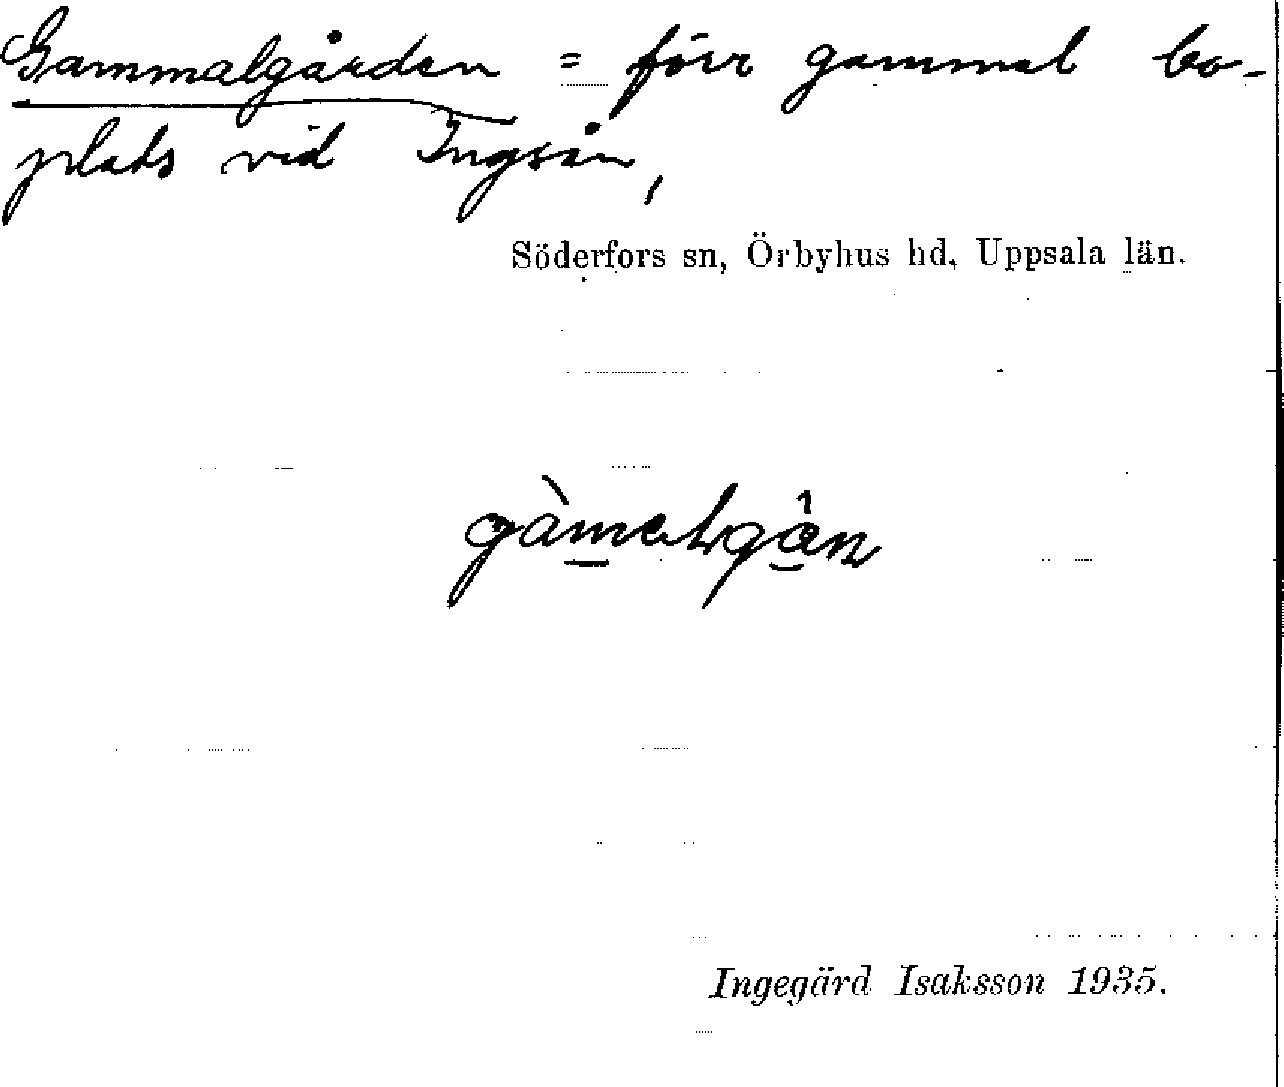 Gammalgården = förr gammal bo-
plats vid Ingsån,
Söderfors sn, Örbyhus hd, Uppsala län.
Ingegärd Isaksson 1935.